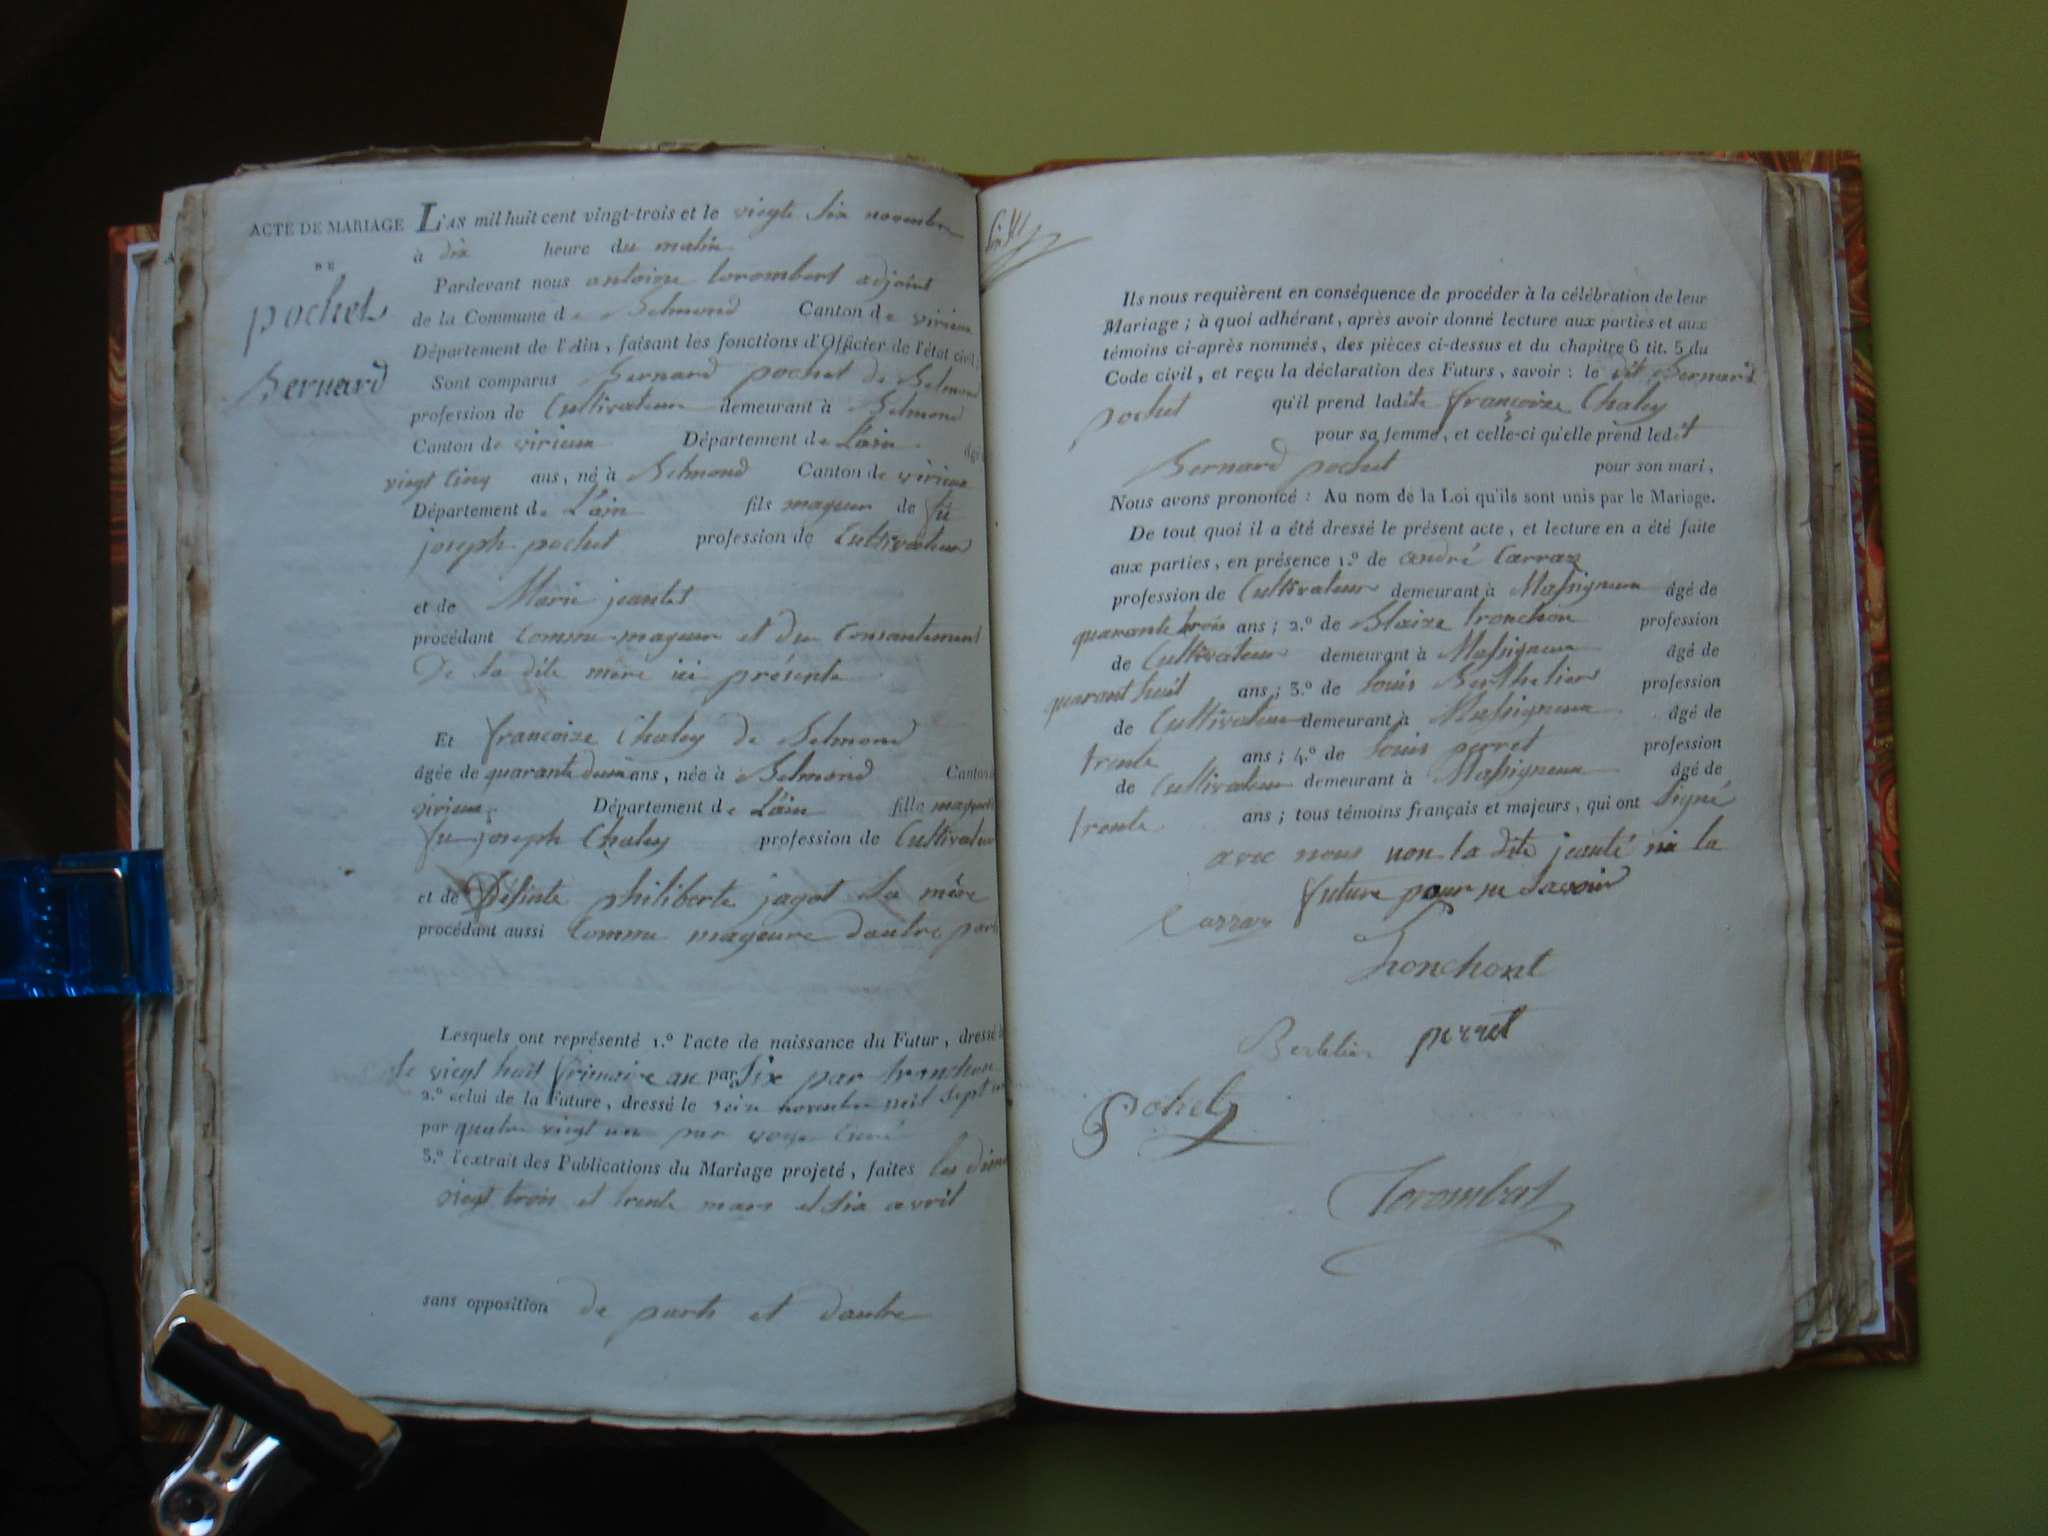 ACTE DE MARIAGE
DE
pochet
Bernard
L'AN mil huit cent vingt-trois et le viegte six novembre
à dix heure du matin
Pardevant nous antoine torombert adjoint
de la Commune de Belmond Canton de virieux
Département de l'Ain, faisant les fonctions d'Officier de l'état civil;
Sont comparus Bernard pochet de Belmond
profession de Cultivateur demeurant à Belmond
Canton de virieux Département de L'ain âgé
viegt Cinq ans, né à Belmond Canton de virieux
Département de L'ain fils mageur de fû
joseph pochet profession de Cultivateur
et de Marie jeantet
procédant comme mageur et du Consantement
De sa dite mère ici présente
Et françoize Chaley de Belmond
âgée de quarante deux ans, née à Belmond Canton
virieux Département de L'ain fille mageure
fu joseph Chaley profession de Cultivateur
et de Definte philiberte jagot sa mère
procédant aussi Comme mageure dautre part
Lesquels ont représenté 1.º l'acte de naissance du Futur, dressé
le viegt huit frimaire an par Six par tronchon
2.º celui de la Future, dressé le seize novembre mil sept
par quatre viegt un par curé
3.º l'extrait des Publications du Mariage projeté, faites les dim
viegt trois et trente mars et six avril
sans opposition de parts et dautre
Ils nous requièrent en conséquence de procéder à la célébration de leur
Mariage; à quoi adhérant, après avoir donné lecture aux parties et aux
témoins ci-après nommés, des pièces ci-dessus et du chapitre 6 tit. 5 du
Code civil, et reçu la déclaration des Futurs, savoir: le dit Bernard
pochet qu'il prend ladite françoize Chaley
pour sa femme, et celle-ci qu'elle prend ledit
Bernard pochet pour son mari,
Nous avons prononcé: Au nom de la Loi qu'ils sont unis par le Mariage.
De tout quoi il a été dressé le présent acte, et lecture en a été faite
aux parties, en présence 1.º de andré Carraz
profession de Cultivateur demeurant à Massigneux âgé de
quarante trois ans; 2.º de Blaize tronchon profession
de Cultivateur demeurant à Massigneux âgé de
quarant huit ans; 3.º de Louis Berthelier profession
de Cultivateur demeurant à Massigneux âgé de
trente ans; 4.º de Louis perret profession
de Cultivateur demeurant à Massigneux âgé de
trente ans; tous témoins français et majeurs, qui ont Signé
avec nous non la dite jeanté ni la
future pour ne Savoir
Carraz
tronchont
Bertelier perret
Pochet
Torombert